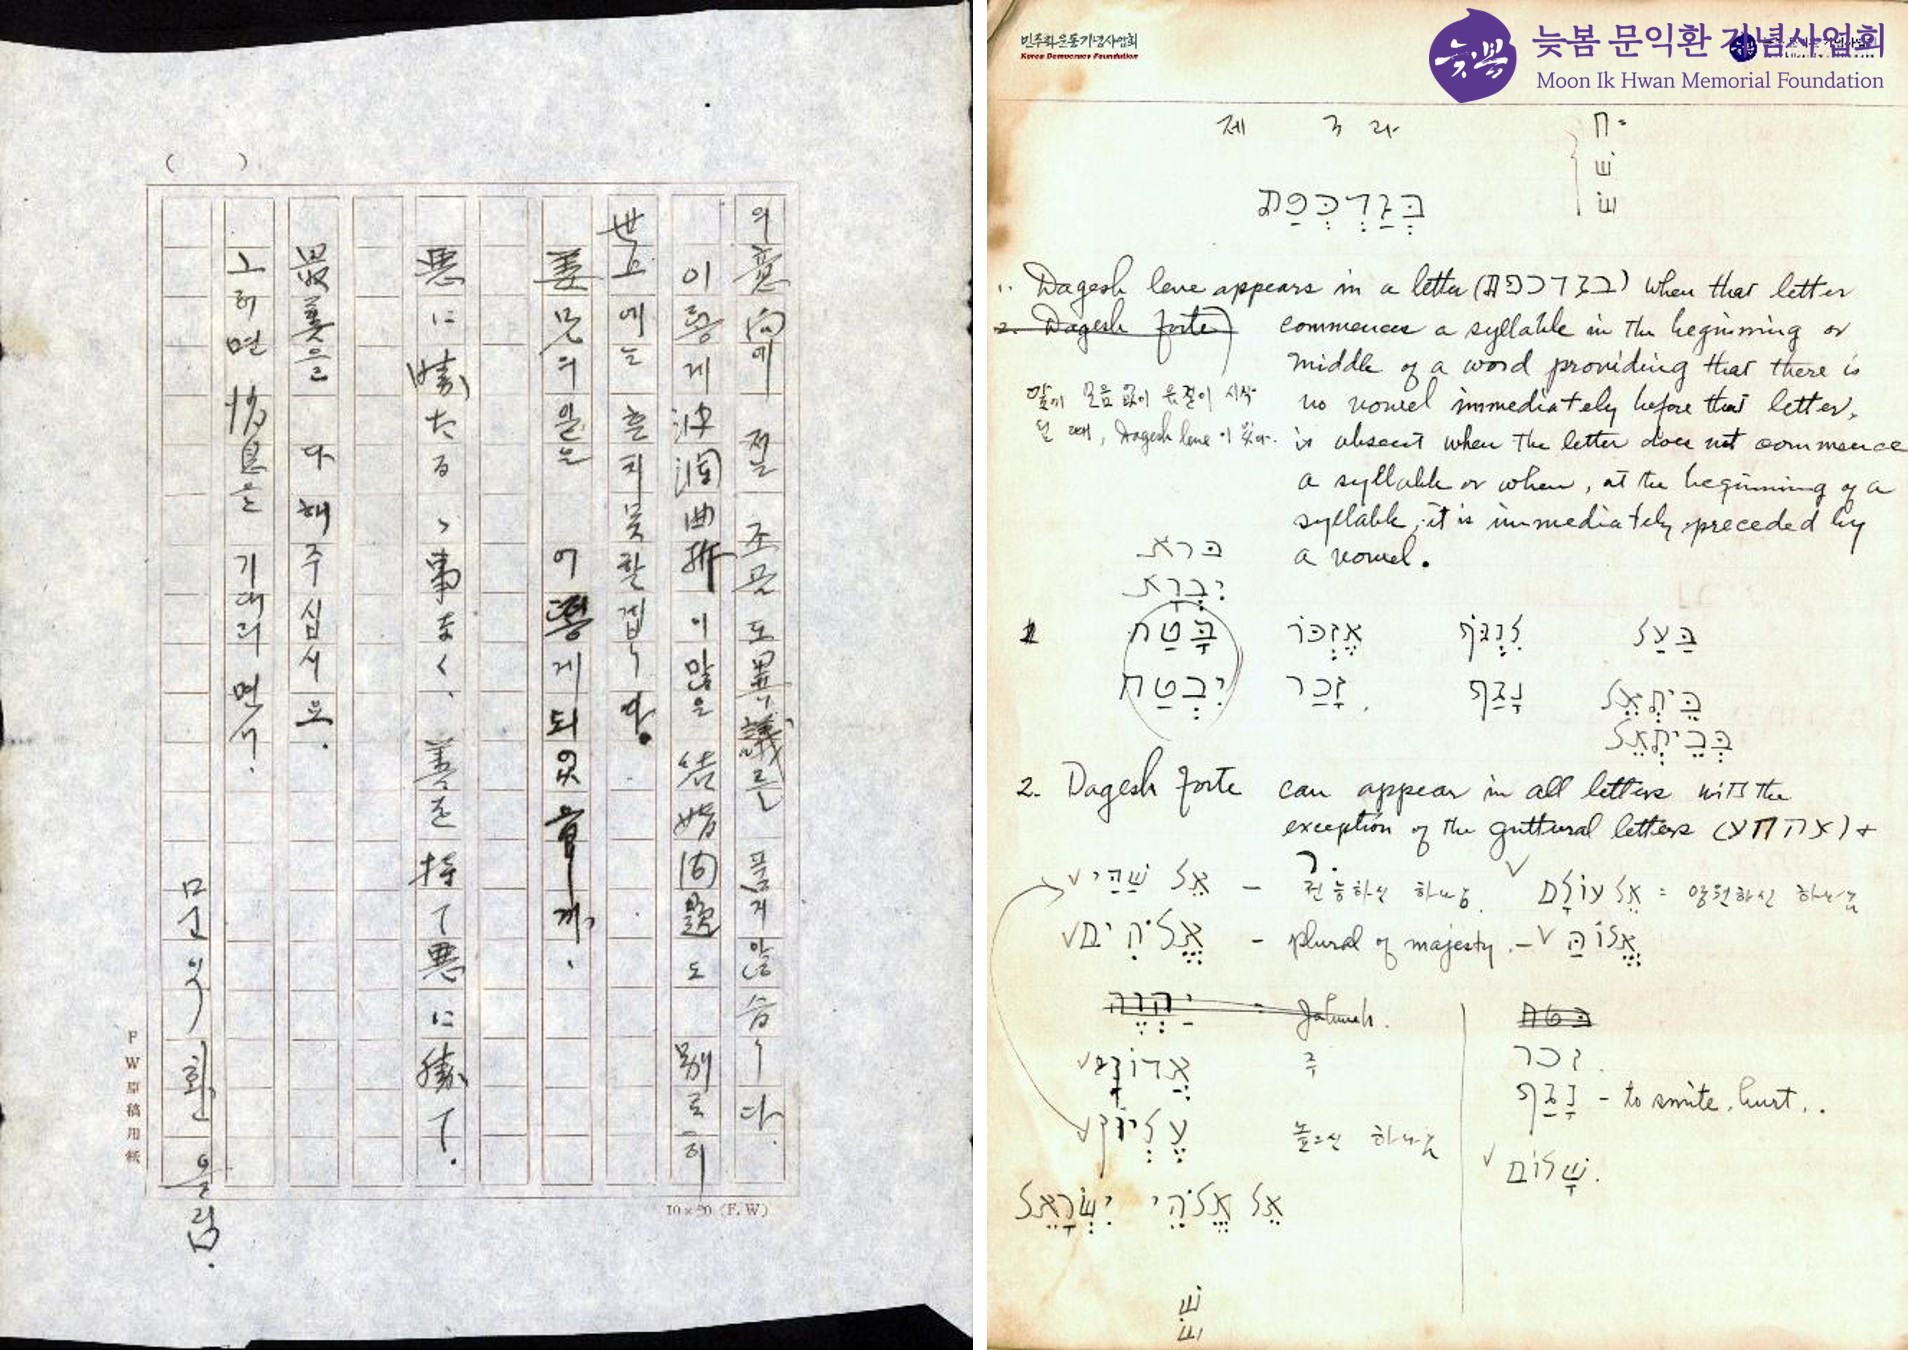 ( )
의 意向에 저는 조곰도 異議를 품게 않습니다.
이렇게 波瀾曲折이 많은 結婚問題도 別로히
世上에는 흔지 못할 겝니다.
姜兄의 일은 어떻게 되였을가.
悪に勝たるゝ事なく、善を持て悪に勝て.
最善을 다 해 주십시오.
그러면 消息을 기대리면서.
문익환 올림.
10×20 (F.W)
F W 原稿用紙
민주화운동기념사업회
Korea Democracy Foundation
늦봄
늦봄 문익환 기념사업회
Moon Ik Hwan Memorial Foundation
제 3 과
ח =
שׁ
שׂ
בְּגַדְכְּפַת
1. Dagesh lene appears in a letter (בגדכפת) when that letter
2. Dagesh forte commences a syllable in the beginning or
middle of a word providing that there is
no vowel immediately before that letter,
is absent when the letter does not commence
a syllable or when, at the beginning of a
syllable, it is immediately preceded by
a vowel.
말에 모음 없이 음절이 시작
될 때에, Dagesh lene이 있다.
ברא
יִבְרָא
1 בָּטַח אֶזְכּוֹר לִנְגֹּף בַּעַל
יִבְטַח זָכַר . נָגַף בֵּיתְאֵל
בְּבֵיתְאֵל
2. Dagesh forte can appear in all letters with the
exception of the guttural letters (אהחע) +
ר.
אֵל שַׁדַּי – 전능하신 하나님. אֵל עוֹלָם = 영원하신 하나님
אֱלֹהִים – plural of majesty. – אֱלוֹהַּ
יהוה - Jahweh.
בטח
אֲדוֹנָי 주
זכר.
נָגַף – to smite, hurt..
עֶלְיוֹן 높으신 하나님
שָׁלוֹם.
אֵל אֱלֹהֵי יִשְׂרָאֵל
שׁ
שׂ